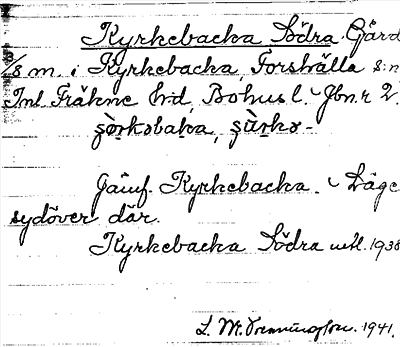 Kyrkebacka Södra. Gård
i Kyrkebacka, Forshälla s:n
Inl. Fräkne hd, Bohusl. Jbn.r 2.
Jämf. Kyrkebacka. Läge
sydöver där.
Kyrkebacka Södra utt. 1938
1941.